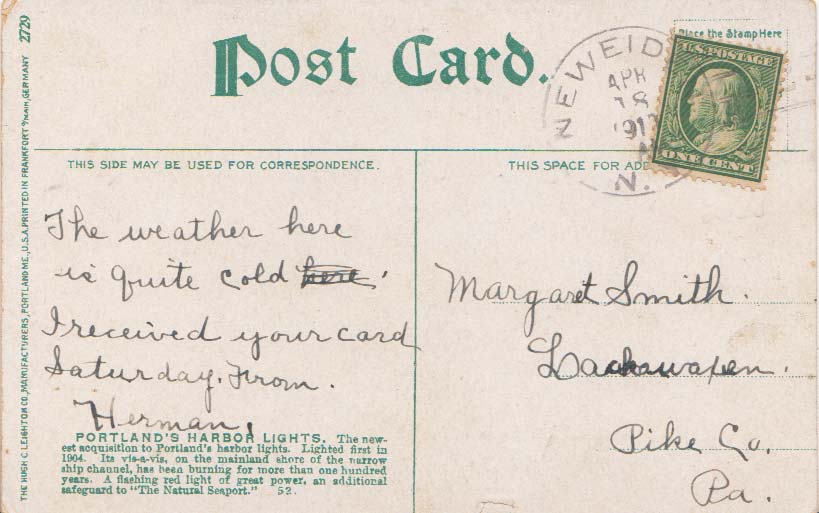 2729
THE HUGH C. LEIGHTON CO., MANUFACTURERS, PORTLAND ME., U.S.A. PRINTED IN FRANKFORT o/MAIN, GERMANY
Post Card.
Place the Stamp Here
U.S. POSTAGE
ONE CENT
NEWEID
APR
18
N.
THIS SIDE MAY BE USED FOR CORRESPONDENCE.
THIS SPACE FOR ADD
The weather here
is quite cold here.
I received your card
Saturday. From.
Herman.
PORTLAND'S HARBOR LIGHTS. The new-
est acquisition to Portland's harbor lights. Lighted first in
1904. Its vis-a-vis, on the mainland shore of the narrow
ship channel, has been burning for more than one hundred
years. A flashing red light of great power, an additional
safeguard to "The Natural Seaport." 52.
Margaret Smith.
Lackawaxen.
Pike Co.
Pa.